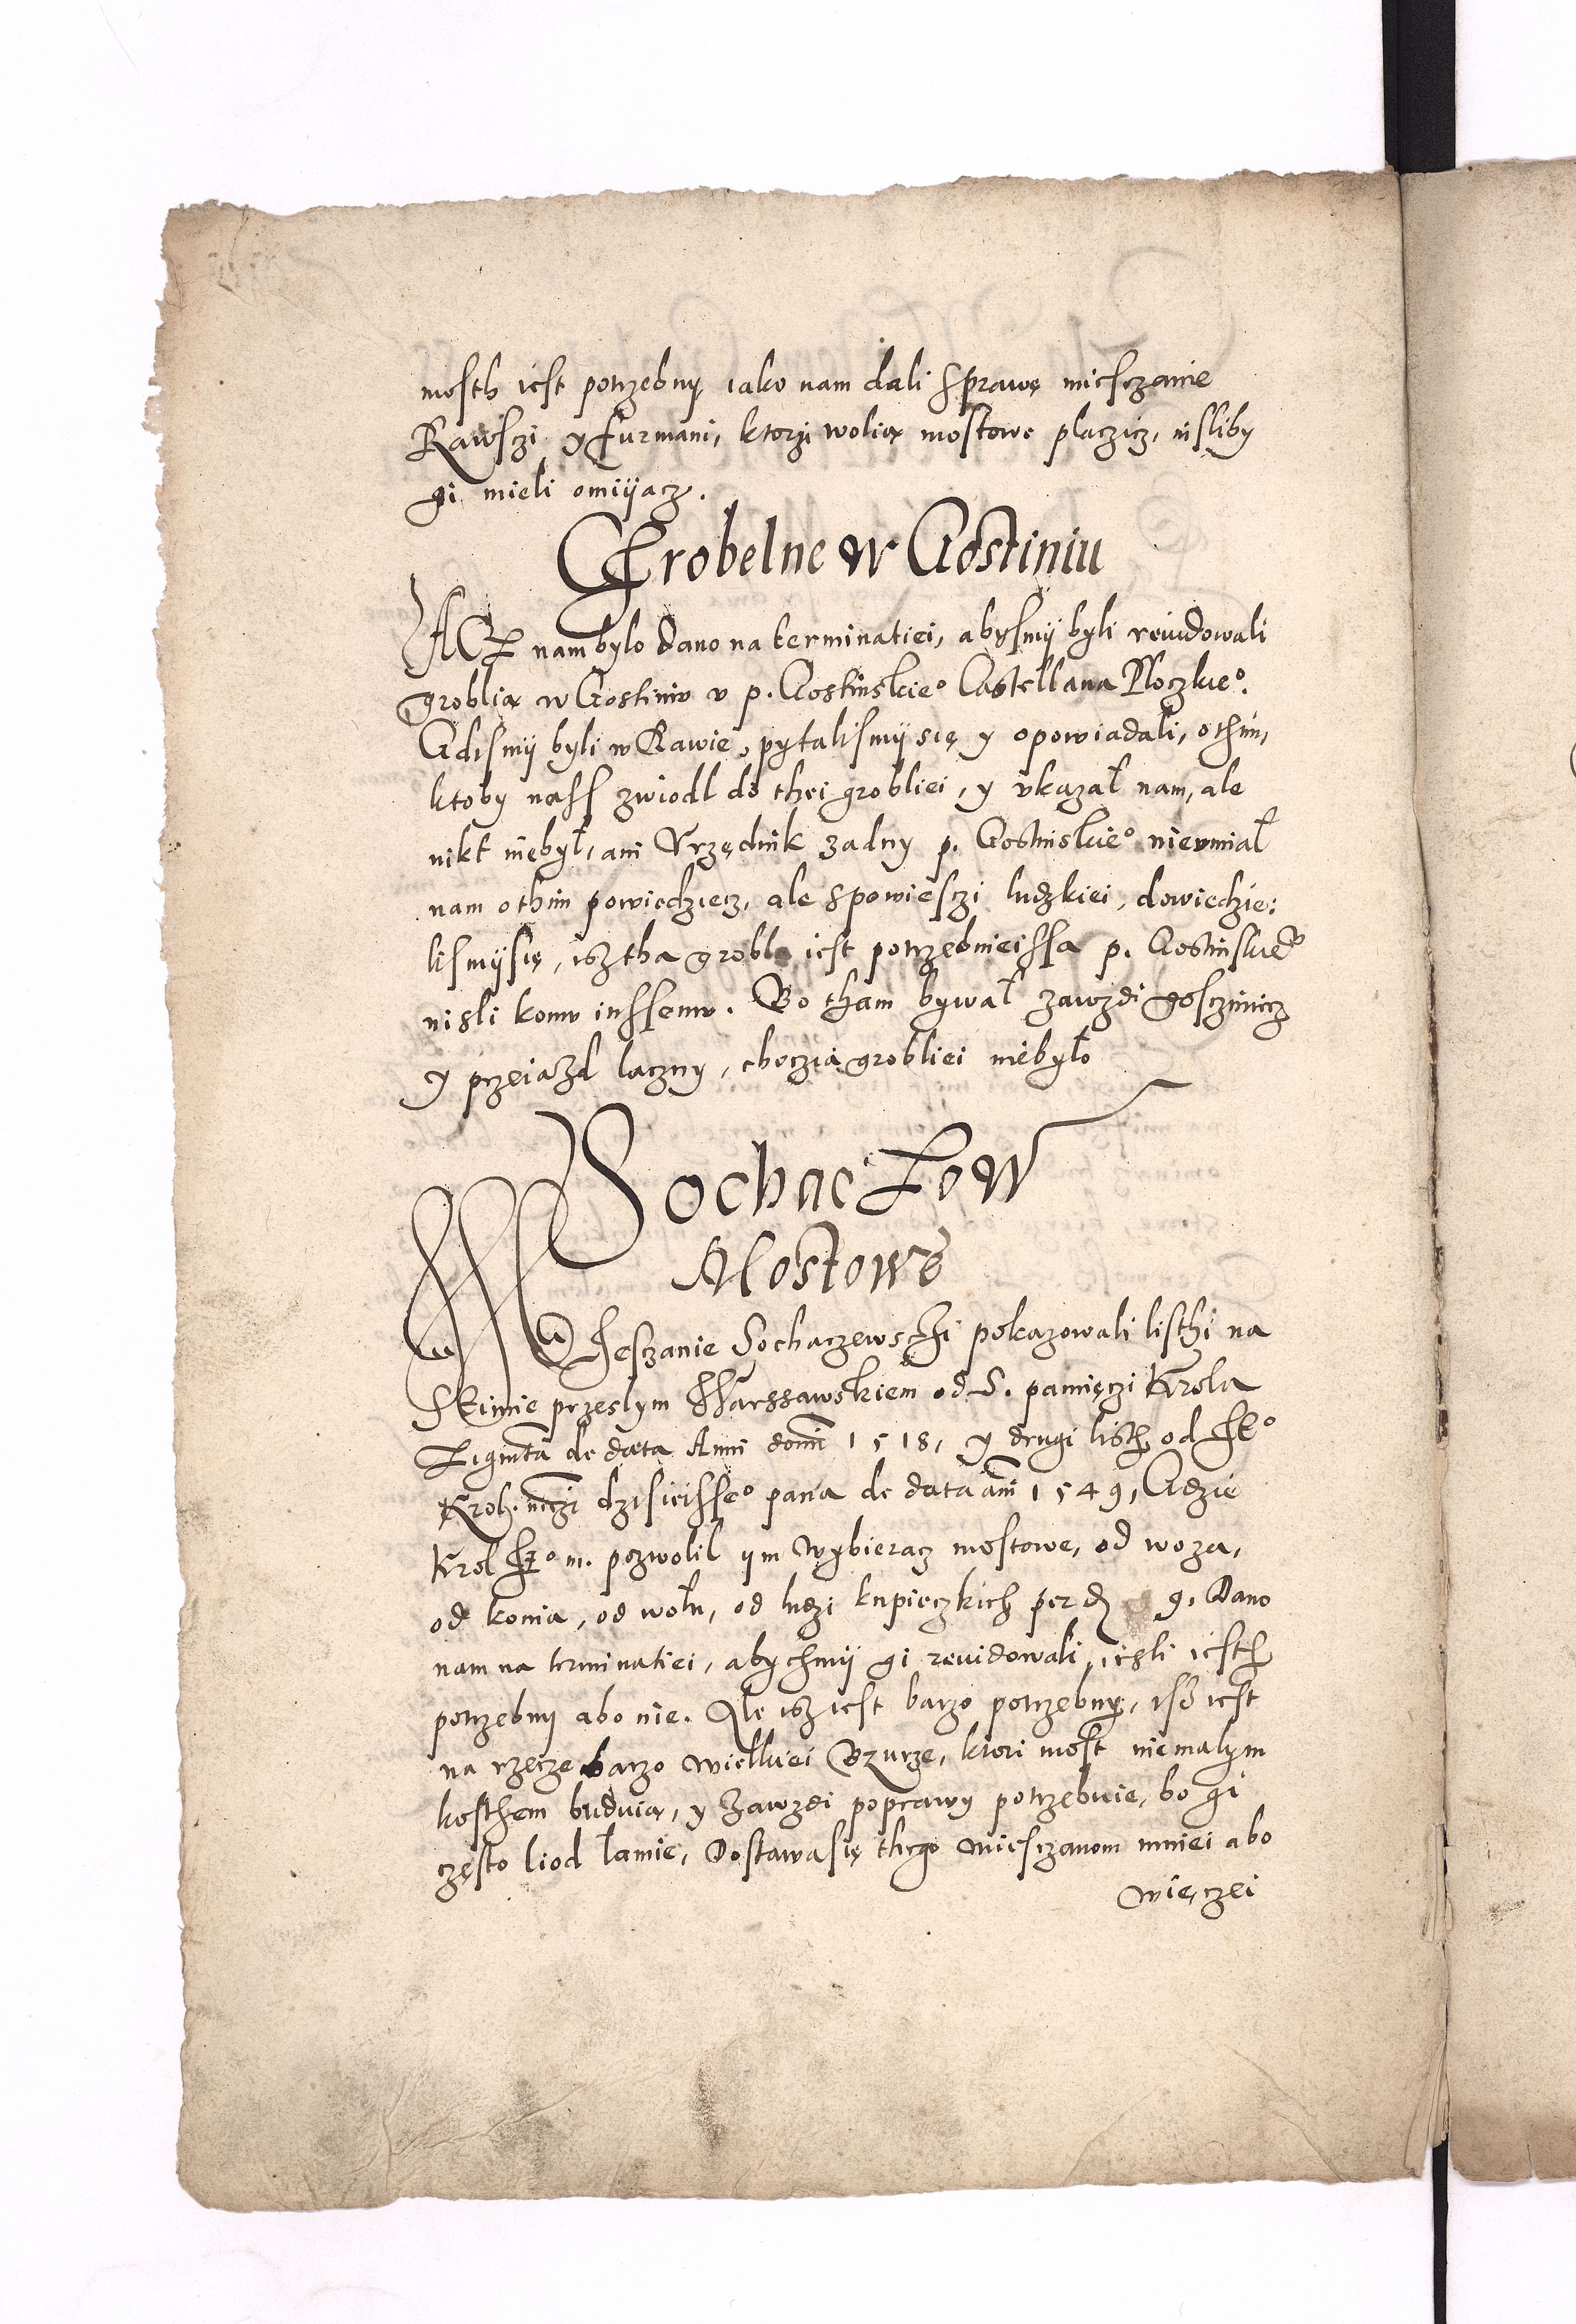 mosth iest potrzebny iako nam dali sprawę miesczanie
Rawsczi y furmani, ktorzi wolią mostowe placzicz, nisliby
gi mieli omiyacz.
Grobelne w Gostiniu
ACz nam bylo dano na terminatiei, abysmÿ byli reuidowali
groblią w Gostiniu v p. Gostinskie° Castellana Ploczkie°.
Gdismÿ byli w Rawie, pytalismÿ się y opowiadali, othim,
ktoby nass zwiodl do thei grobliei, y vkazał nam, ale
nikt niebył, ani Vrzędnik zadny p. Gostinskie° nieumiał
nam othim powiedziecz, ale spowiesczi ludzkiei, dowiedzie:
lismÿsię, isz tha grobla iest potrzebnieissa p. Gostinskie°
nisli komu inssemu. Bo tham bywał zawzdi gosczinicz
y przeiazd laczny, choczia grobliei niebyło
Sochaczow
Mostowe
Miesczanie Sochaczewsczi pokazowali listhi na
Seimie przeslym Warssawskiem od S. pamięczi Krola
Zigmta de data Anni domi 1518, y drugi listh od
Krol. dzisieisse° pana de data ani 1549, Gdzie
Krol m. pozwolil ym wybieracz mostowe, od woza,
od konia, od wołu, od ludzi kupieczkich per 9. Dano
nam na terminatiei, abychmÿ gi reuidowali, iesli iesth
potrzebny abo nie. Ale isz iest barzo potrzebny, isz iest
na rzecze barzo wielkiei Bzurze, ktori most niemalym
kosthem buduią, y zawzdi poprawy potrzebuie, bo gi
często liod łamie, Dostawa się thego miesczanom mniei abo
więczei